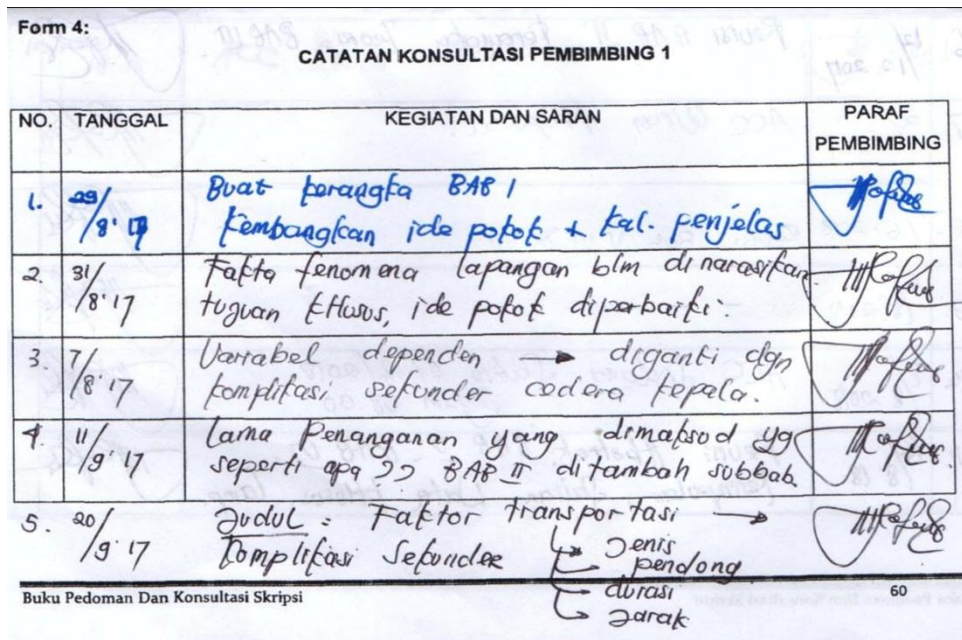 Form 4:
CATATAN KONSULTASI PEMBIMBING 1
NO. TANGGAL KEGIATAN DAN SARAN PARAF PEMBIMBING
1. 29/8'17 Buat kerangka BAB I
Kembangkan ide pokok + kal. penjelas
2. 31/8'17 Fakta fenomena lapangan blm dinarasikan
tujuan khusus, ide pokok diperbaiki.
3. 7/8'17 Variabel dependen → diganti dgn
komplikasi sekunder cedera kepala.
4. 11/9'17 Lama Penanganan yang dimaksud yg
seperti apa ?? BAB II ditambah subbab.
5. 20/9'17 Judul : Faktor transportasi →
Komplikasi Sekunder
Jenis
pendong
durasi
Jarak
Buku Pedoman Dan Konsultasi Skripsi 60